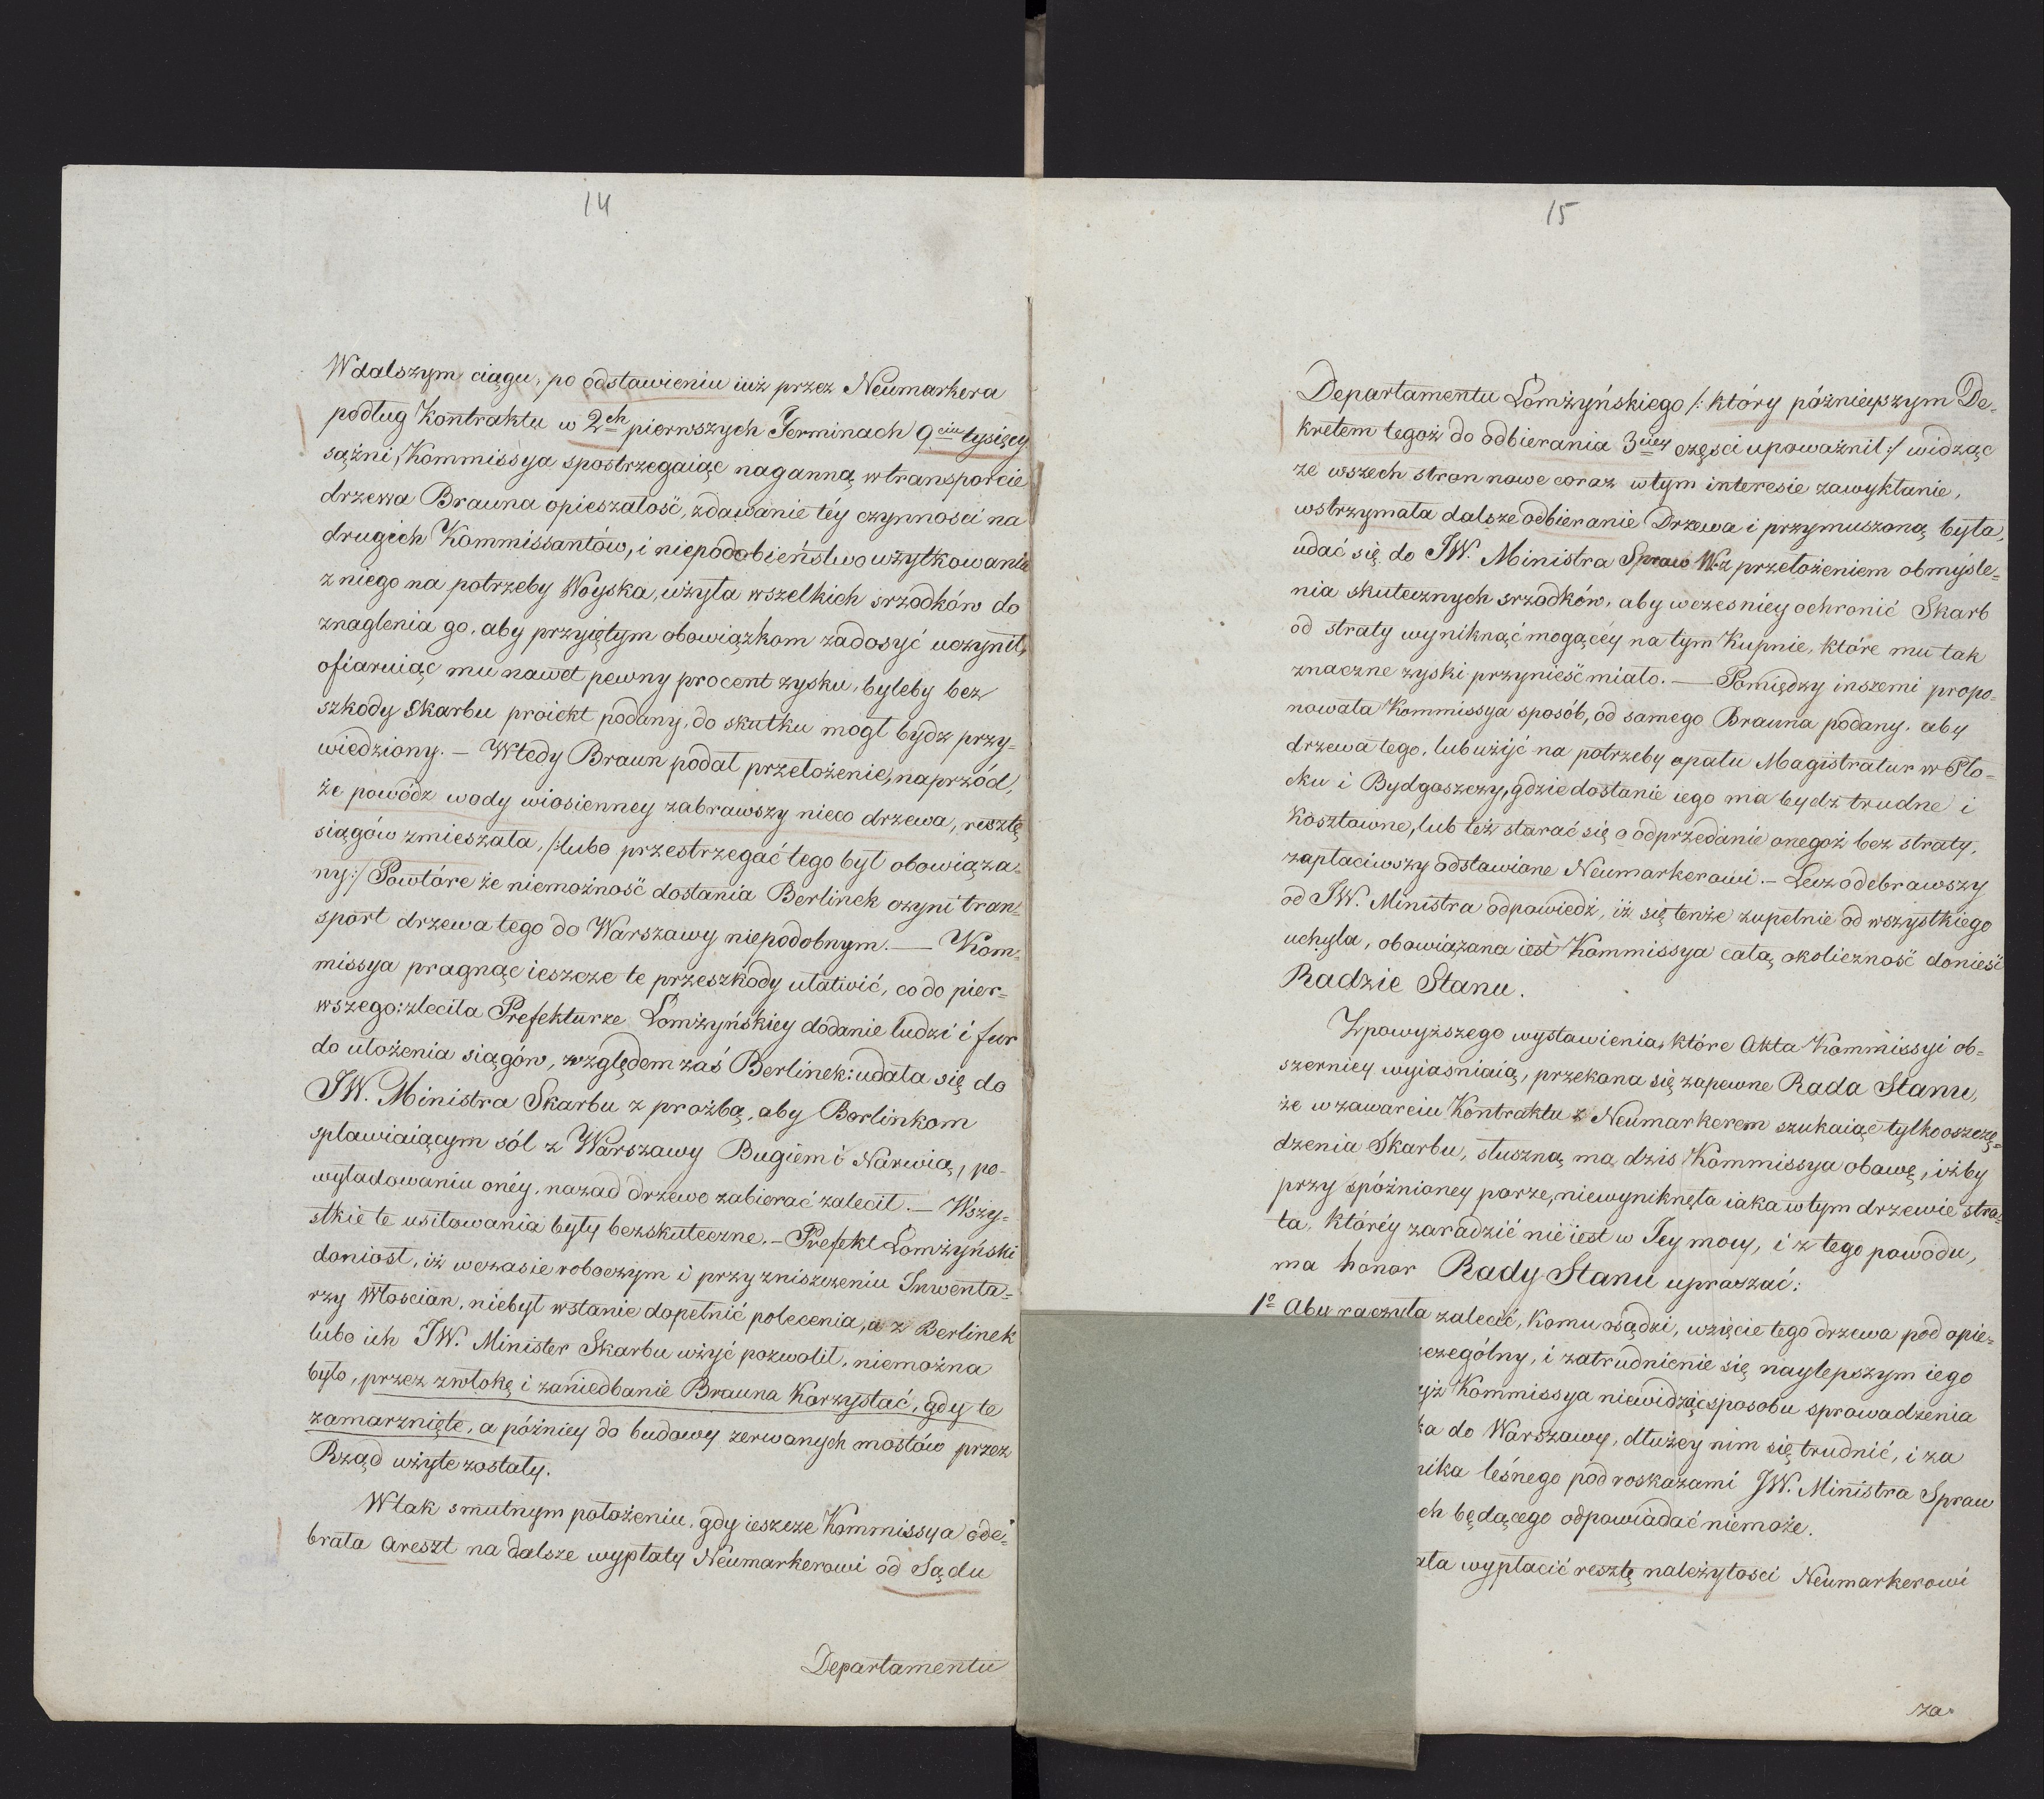 14
W dalszym ciągu, po odstawieniu iuż przez Neumarkera
podług Kontraktu w 2ch pierwszych Terminach 9ciu tysięcy
sążni, Kommissya spostrzegaiąc naganną w transporcie
drzewa Brauna opieszałość, zdawanie téy czynności na
drugich Kommissantów, i niepodobieństwo użytkowania
z niego na potrzeby Woyska, użyła wszelkich srzodków do
znaglenia go, aby przyiętym obowiązkom zadosyć uczynił,
ofiaruiąc mu nawet pewny procent zysku, byleby bez
szkody Skarbu proiekt podany, do skutku mogł bydz przy=
wiedziony. — Wtedy Braun podał przełożenie, naprzód,
że powódz wody wiosienney zabrawszy nieco drzewa, resztę
siągów zmieszała, /:lubo przestrzegać tego był obowiąza=
ny:/ Powtóre że niemożność dostania Berlinek czyni tran=
sport drzewa tego do Warszawy niepodobnym. — Kom=
missya pragnąc ieszcze te przeszkody ułatwić, co do pier=
wszego: zleciła Prefekturze Łomżyńskiey dodanie ludzi i fur
do ułożenia siągów, względem zaś Berlinek: udała się do
JW. Ministra Skarbu z proźbą, aby Berlinkom
spławiaiącym sól z Warszawy Bugiem i Narwią, po-
wyładowaniu onéy, nazad drzewo zabierać zalecił. — Wszy=
stkie te usiłowania były bezskuteczne. — Prefekt Łomżyński
doniosł, iż w czasie roboczym i przy zniszczeniu Inwenta=
rzy Włoscian, niebył wstanie dopełnić polecenia, a z Berlinek
lubo ich JW. Minister Skarbu użyć pozwolił, niemożna
było, przez zwłokę i zaniedbanie Brauna korzystać, gdy te
zamarznięte, a późniey do budowy zerwanych mostów przez
Rząd użyte zostały.
W tak smutnym położeniu, gdy ieszcze Kommissya ode=
brała areszt na dalsze wypłaty Neumarkerowi od Sądu
Departamentu
15
Departamentu Łomżyńskiego /: który późnieyszym De=
kretem tegoż do odbierania 3ciey części upoważnił :/ widząc
ze wszech stron nowe coraz w tym interesie zawykłanie,
wstrzymała dalsze odbieranie Drzewa i przymuszoną była,
udać się do JW. Ministra Spraw W. z przełożeniem obmyśle=
nia skutecznych srzodków, aby wcześniey ochronić Skarb
od straty wyniknąć mogącéy na tym Kupnie, które mu tak
znaczne zyski przynieść miało. — Pomiędzy inszemi propo=
nowała Kommissya sposób, od samego Brauna podany, aby
drzewa tego, lub użyć na potrzeby opału Magistratur w Pło=
cku i Bydgoszczy, gdzie dostanie iego ma bydz trudne i
kosztowne, lub też starać się o odprzedanie onegoż bez straty,
zapłaciwszy odstawione Neumarkerowi. — Lecz odebrawszy
od JW. Ministra odpowiedź, iż się tenże zupełnie od wszystkiego
uchyla, obowiązana iest Kommissya całą okoliczność donieść
Radzie Stanu.
Z powyższego wystawienia, które Akta Kommissyi ob=
szerniey wyiasniaią, przekona się zapewne Rada Stanu,
że w zawarciu Kontraktu z Neumarkerem szukaiąc tylko oszczę=
dzenia Skarbu, słuszną ma dzis Kommissya obawę, iżby
przy spóźnioney porze, niewyniknęła iaka w tym drzewie stra=
ta, któréy zaradzić nie iest w Jey mocy, i z tego powodu,
ma honor Rady Stanu upraszać:
1o Aby raczyła zalecić, komu osądzi, wzięcie tego drzewa pod opie=
czególny, i zatrudnienie się naylepszym iego
yż Kommissya niewidząc sposobu sprowadzenia
ka do Warszawy, dłużey nim się trudnić, i za
nika leśnego pod roskazami JW. Ministra Spraw
ch będącego odpowiadać niemoże.
ała wypłacić resztę należytosci Neumarkerowi
za